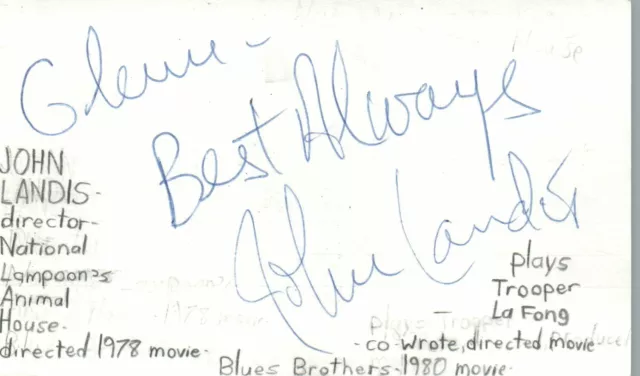 Glenn -
Best Always
John Landis
JOHN
LANDIS -
director -
National
Lampoon's
Animal
House -
directed 1978 movie -
plays
Trooper
La Fong
- co wrote, directed movie
Blues Brothers - 1980 movie -